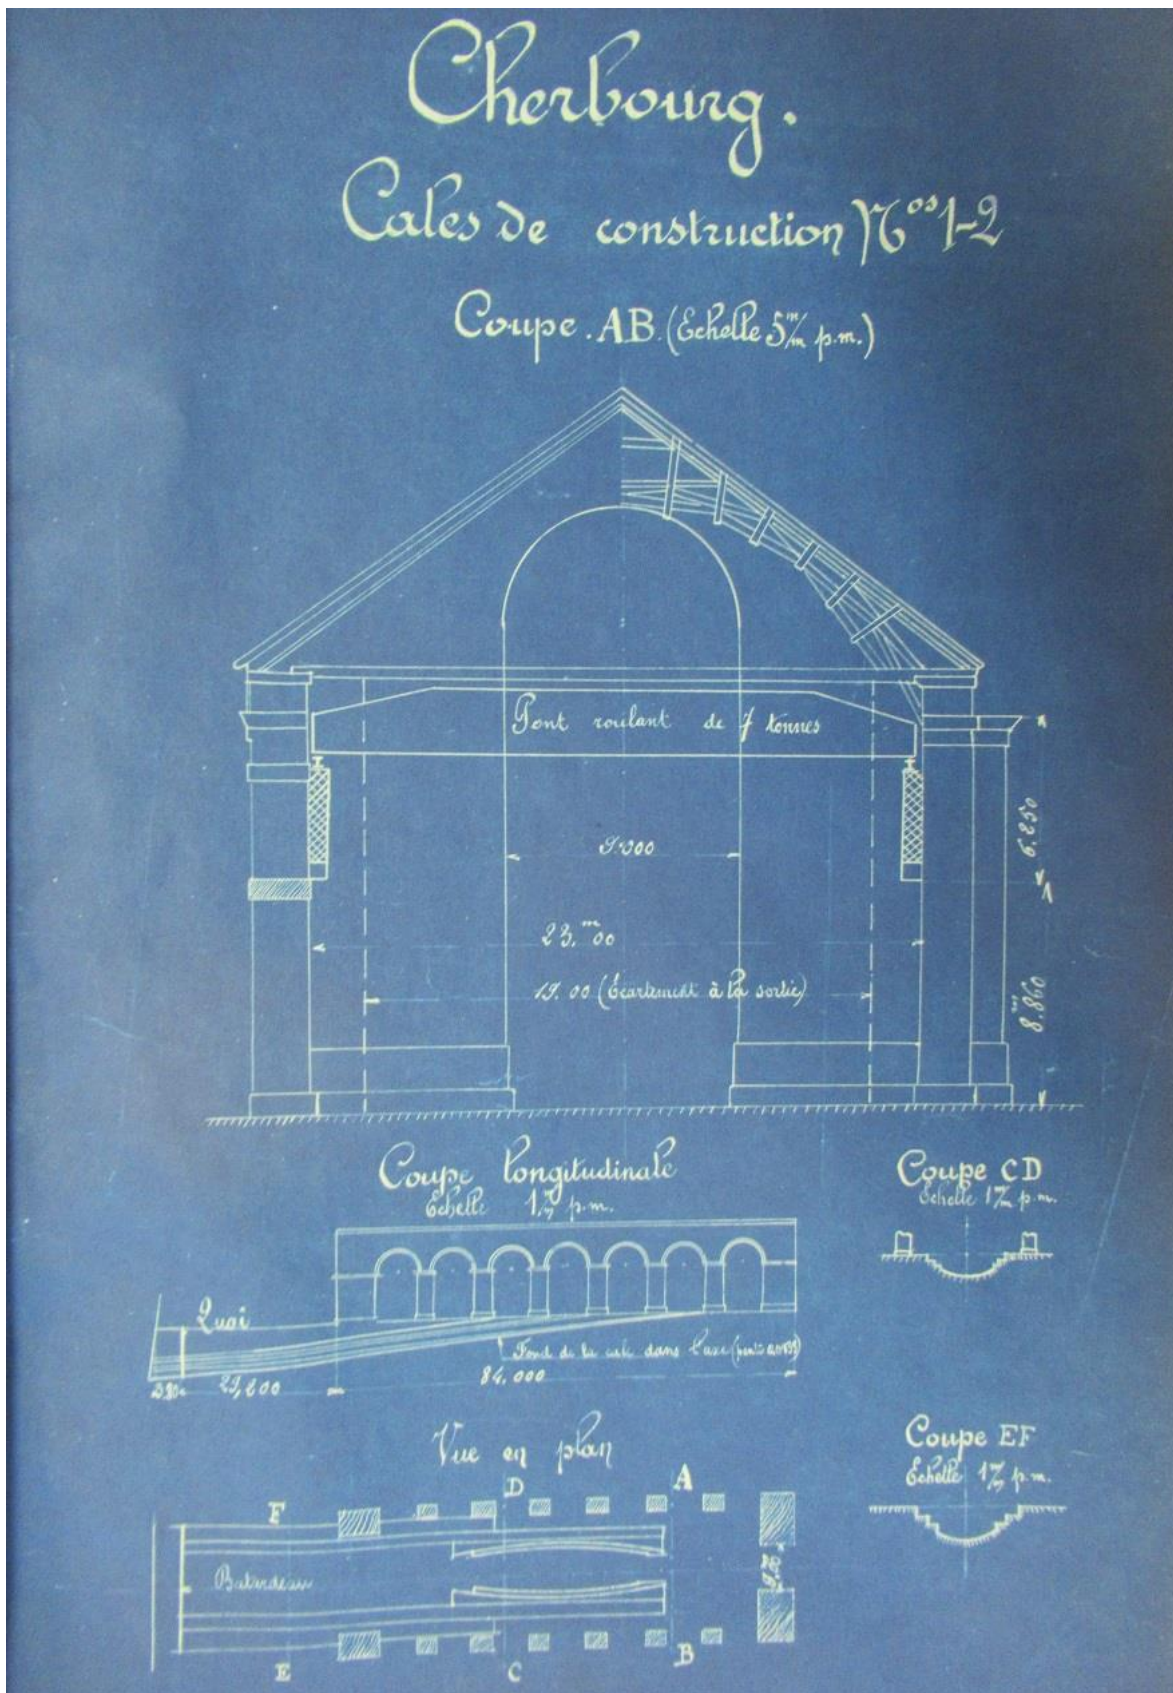 Cherbourg.
Cales de construction Nos 1-2
Coupe. AB. (Echelle 5 m/m p.m.)
Pont roulant de 7 tonnes
9.000
6.250
23.m00
19.00 (Écartement à la sortie)
8.m860
Coupe longitudinale
Echelle 1 m/m p.m.
Coupe CD
Echelle 1 m/m p.m.
Quai
Fond de la cale dans l'axe
29,200
84.000
Vue en plan
Coupe EF
Echelle 1 m/m p.m.
D
A
F
Batardeau
E
C
B